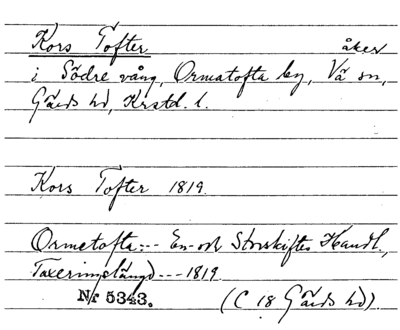 Kors Tofter åker
i Södre vång, Ormatofta by, Vä sn,
Gärds hd, Krstd. l.
Kors Tofter 1819
Ormetofta:-- En- och Storskiftes Handl.,
Taxeringslängd --- 1819
Nr 5343. (C 18 Gärds hd).